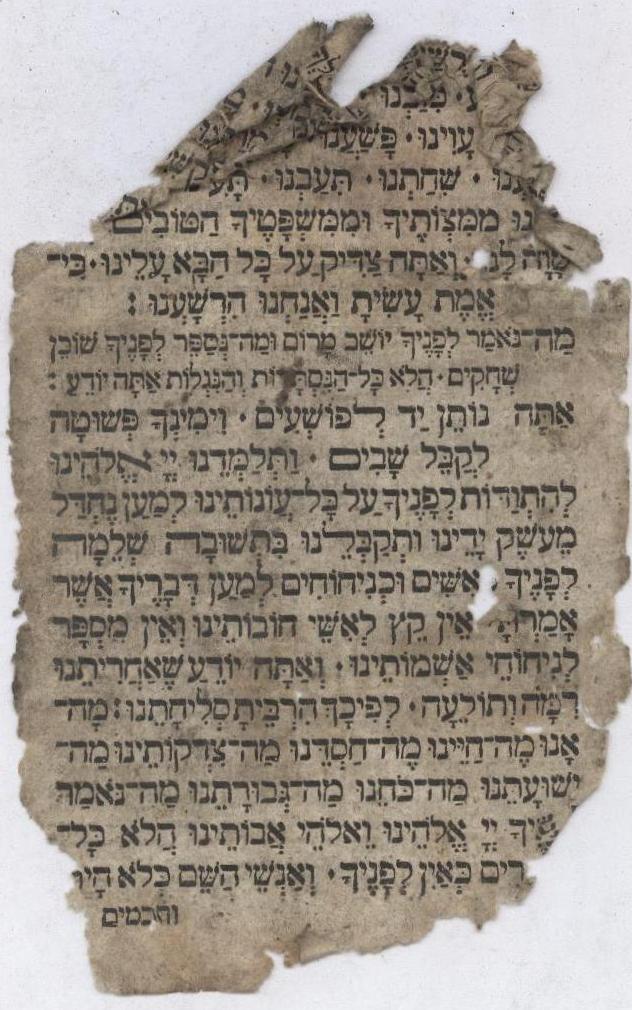 הִרְשַׁ
מָרַדְנוּ
עָוִינוּ · פָּשַׁעְנוּ
שִׁחַתְנוּ · תִּעַבְנוּ ·
נוּ מִמִּצְוֹתֶיךָ וּמִמִּשְׁפָּטֶיךָ הַטּוֹבִים
שָׁוָה לָנוּ · וְאַתָּה צַדִּיק עַל כָּל הַבָּא עָלֵינוּ · כִּי־
אֱמֶת עָשִׂיתָ וַאֲנַחְנוּ הִרְשָׁעְנוּ :
מַה־נֹּאמַר לְפָנֶיךָ יוֹשֵׁב מָרוֹם וּמַה־נְּסַפֵּר לְפָנֶיךָ שׁוֹכֵן
שְׁחָקִים · הֲלֹא כָּל־הַנִּסְתָּרוֹת וְהַנִּגְלוֹת אַתָּה יוֹדֵעַ :
אַתָּה נוֹתֵן יָד לְפוֹשְׁעִים · וִימִינְךָ פְּשׁוּטָה
לְקַבֵּל שָׁבִים · וַתְּלַמְּדֵנוּ יְיָ אֱלֹהֵינוּ
לְהִתְוַדּוֹת לְפָנֶיךָ עַל כָּל־עֲוֹנוֹתֵינוּ לְמַעַן נֶחְדַּל
מֵעֹשֶׁק יָדֵינוּ וּתְקַבְּלֵנוּ בִּתְשׁוּבָה שְׁלֵמָה
לְפָנֶיךָ אִשִּׁים וּכְנִיחוֹחִים לְמַעַן דְּבָרֶיךָ אֲשֶׁר
אָמַרְתָּ אֵין קֵץ לְאִשֵּׁי חוֹבוֹתֵינוּ וְאֵין מִסְפָּר
לְנִיחוֹחֵי אַשְׁמוֹתֵינוּ · וְאַתָּה יוֹדֵעַ שֶׁאַחֲרִיתֵנוּ
רִמָּה וְתוֹלֵעָה · לְפִיכָךְ הִרְבֵּיתָ סְלִיחָתֵנוּ : מָה־
אָנוּ מֶה־חַיֵּינוּ מֶה־חַסְדֵּנוּ מַה־צִּדְקוֹתֵינוּ מַה־
יְּשׁוּעָתֵנוּ מַה־כֹּחֵנוּ מַה־גְּבוּרָתֵנוּ מַה־נֹּאמַר
נֶיךָ יְיָ אֱלֹהֵינוּ וֵאלֹהֵי אֲבוֹתֵינוּ הֲלֹא כָּל־
רִים כְּאַיִן לְפָנֶיךָ · וְאַנְשֵׁי הַשֵּׁם כְּלֹא הָיוּ
וחכמים